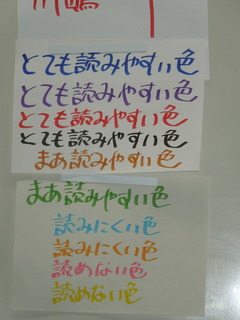 川嶋
とても読みやすい色
とても読みやすい色
とても読みやすい色
とても読みやすい色
まあ読みやすい色
まあ読みやすい色
読みにくい色
読みにくい色
読めない色
読めない色